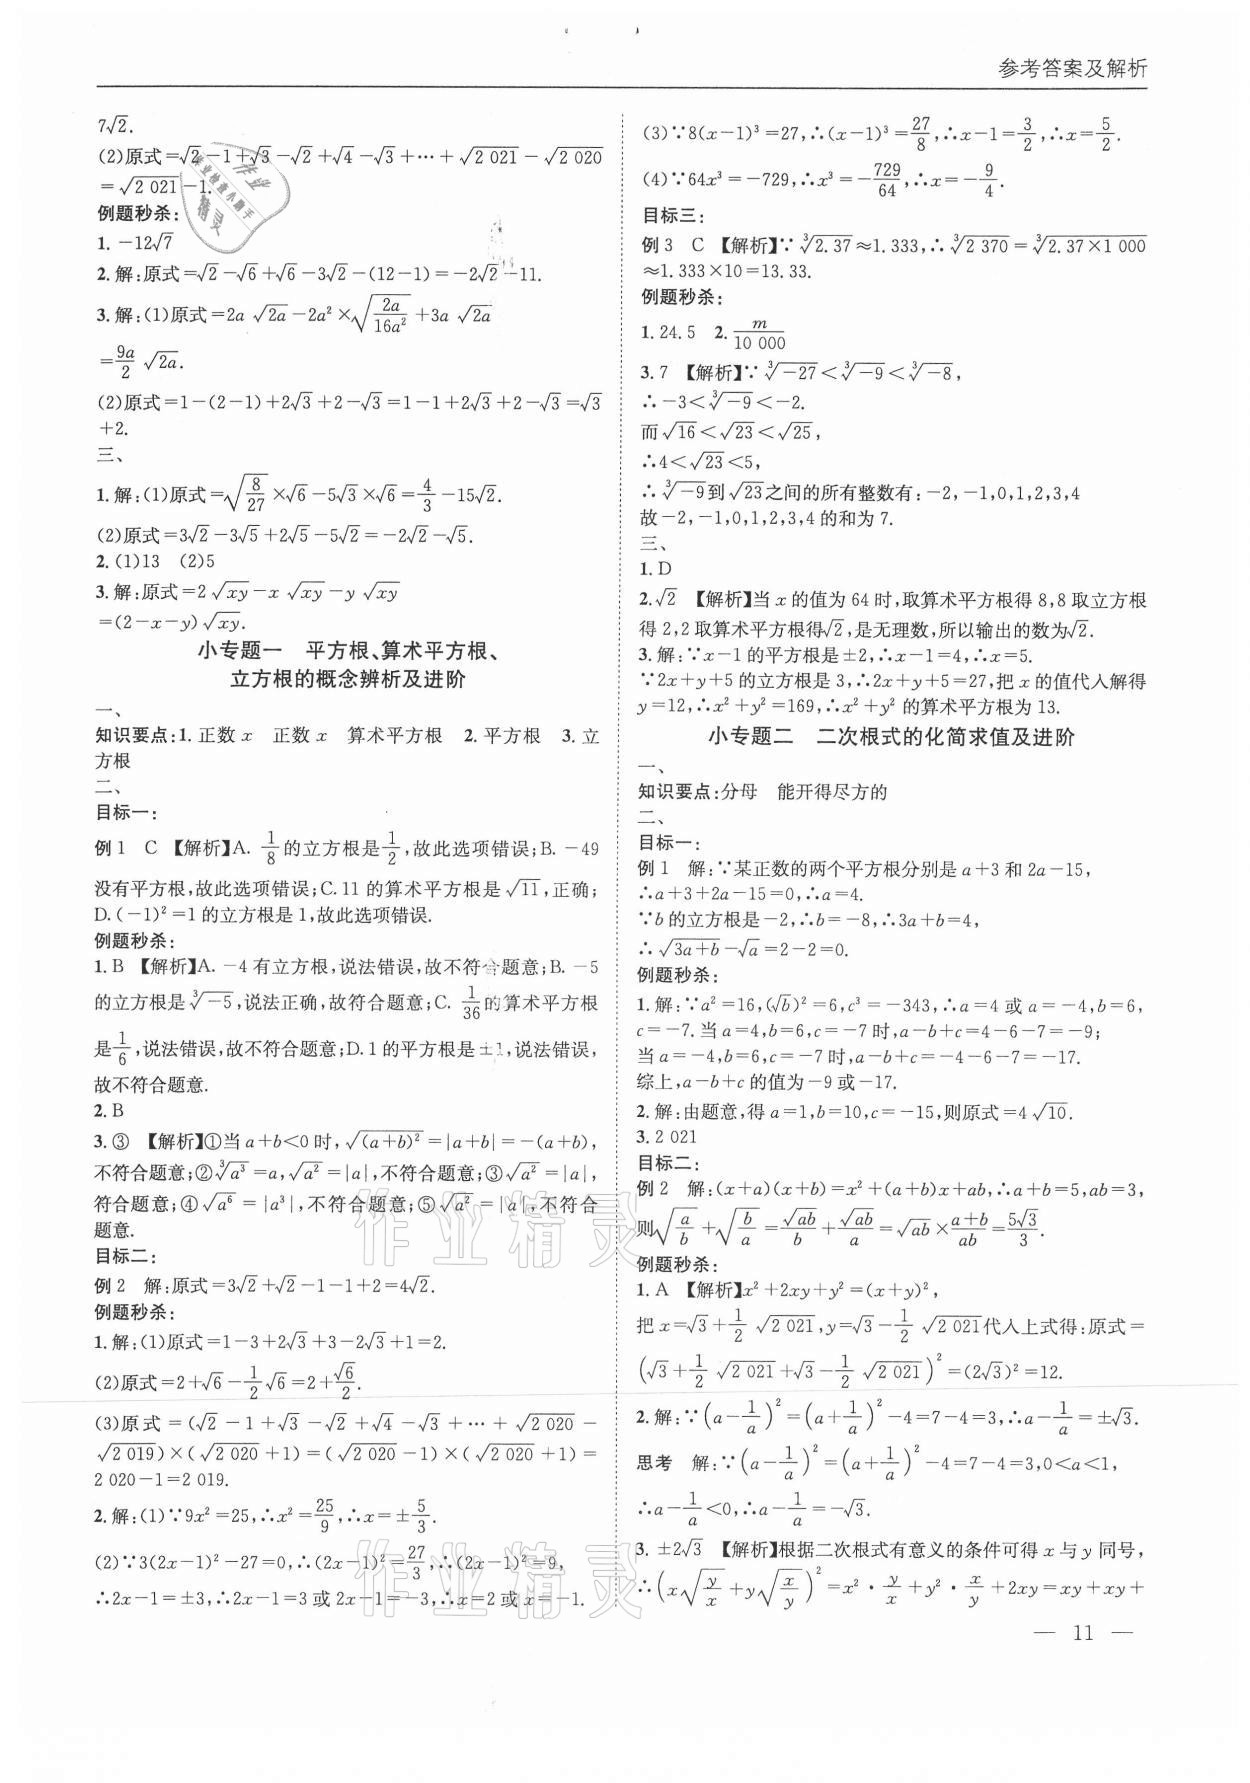 参考答案及解析
7√2.
(2)原式=√2-1+√3-√2+√4-√3+…+√2 021-√2 020
=√2 021-1.
例题秒杀:
1. -12√7
2.解:原式=√2-√6+√6-3√2-(12-1)=-2√2-11.
3.解:(1)原式=2a √2a-2a²×√(2a/16a²)+3a √2a
=9a/2 √2a.
(2)原式=1-(2-1)+2√3+2-√3=1-1+2√3+2-√3=√3
+2.
三、
1.解:(1)原式=√(8/27)×√6-5√3×√6=4/3-15√2.
(2)原式=3√2-3√5+2√5-5√2=-2√2-√5.
2.(1)13 (2)5
3.解:原式=2 √xy-x √xy-y √xy
=(2-x-y)√xy.
小专题一 平方根、算术平方根、
立方根的概念辨析及进阶
一、
知识要点:1.正数x 正数x 算术平方根 2.平方根 3.立
方根
二、
目标一:
例1 C 【解析】A. 1/8的立方根是1/2,故此选项错误;B. -49
没有平方根,故此选项错误;C. 11的算术平方根是√11,正确;
D.(-1)²=1的立方根是1,故此选项错误.
例题秒杀:
1. B 【解析】A. -4有立方根,说法错误,故不符合题意;B. -5
的立方根是∛-5,说法正确,故符合题意;C. 1/36的算术平方根
是1/6,说法错误,故不符合题意;D. 1的平方根是±1,说法错误,
故不符合题意.
2. B
3.③ 【解析】①当a+b<0时,√(a+b)²=|a+b|=-(a+b),
不符合题意;②∛a³=a,√a²=|a|,不符合题意;③√a²=|a|,
符合题意;④√a⁶=|a³|,不符合题意;⑤√a²=|a|,不符合
题意.
目标二:
例2 解:原式=3√2+√2-1-1+2=4√2.
例题秒杀:
1.解:(1)原式=1-3+2√3+3-2√3+1=2.
(2)原式=2+√6-1/2√6=2+√6/2.
(3)原式=(√2-1+√3-√2+√4-√3+…+√2 020-
√2 019)×(√2 020+1)=(√2 020-1)×(√2 020+1)=
2 020-1=2 019.
2.解:(1)∵9x²=25,∴x²=25/9,∴x=±5/3.
(2)∵3(2x-1)²-27=0,∴(2x-1)²=27/3,∴(2x-1)²=9,
∴2x-1=±3,∴2x-1=3或2x-1=-3,∴x=2或x=-1.
(3)∵8(x-1)³=27,∴(x-1)³=27/8,∴x-1=3/2,∴x=5/2.
(4)∵64x³=-729,∴x³=-729/64,∴x=-9/4.
目标三:
例3 C 【解析】∵∛2.37≈1.333,∴∛2 370=∛2.37×1 000
≈1.333×10=13.33.
例题秒杀:
1. 24.5 2. m/10 000
3. 7 【解析】∵∛-27<∛-9<∛-8,
∴-3<∛-9<-2.
而√16<√23<√25,
∴4<√23<5,
∴∛-9到√23之间的所有整数有:-2,-1,0,1,2,3,4
故-2,-1,0,1,2,3,4的和为7.
三、
1. D
2.√2 【解析】当x的值为64时,取算术平方根得8,8取立方根
得2,2取算术平方根得√2,是无理数,所以输出的数为√2.
3.解:∵x-1的平方根是±2,∴x-1=4,∴x=5.
∵2x+y+5的立方根是3,∴2x+y+5=27,把x的值代入解得
y=12,∴x²+y²=169,∴x²+y²的算术平方根为13.
小专题二 二次根式的化简求值及进阶
一、
知识要点:分母 能开得尽方的
二、
目标一:
例1 解:∵某正数的两个平方根分别是a+3和2a-15,
∴a+3+2a-15=0,∴a=4.
∵b的立方根是-2,∴b=-8,∴3a+b=4,
∴√3a+b-√a=2-2=0.
例题秒杀:
1.解:∵a²=16,(√b)²=6,c³=-343,∴a=4或a=-4,b=6,
c=-7.当a=4,b=6,c=-7时,a-b+c=4-6-7=-9;
当a=-4,b=6,c=-7时,a-b+c=-4-6-7=-17.
综上,a-b+c的值为-9或-17.
2.解:由题意,得a=1,b=10,c=-15,则原式=4√10.
3. 2 021
目标二:
例2 解:(x+a)(x+b)=x²+(a+b)x+ab,∴a+b=5,ab=3,
则√(a/b)+√(b/a)=√ab/b+√ab/a=√ab×(a+b)/ab=5√3/3.
例题秒杀:
1. A 【解析】x²+2xy+y²=(x+y)²,
把x=√3+1/2 √2 021,y=√3-1/2 √2 021代入上式得:原式=
(√3+1/2 √2 021+√3-1/2 √2 021)²=(2√3)²=12.
2.解:∵(a-1/a)²=(a+1/a)²-4=7-4=3,∴a-1/a=±√3.
思考 解:∵(a-1/a)²=(a+1/a)²-4=7-4=3,0<a<1,
∴a-1/a<0,∴a-1/a=-√3.
3. ±2√3 【解析】根据二次根式有意义的条件可得x与y同号,
∴(x√(y/x)+y√(x/y))²=x²·y/x+y²·x/y+2xy=xy+xy+
— 11 —
作业精灵
作业精灵
作业
作业检查小助手
精灵